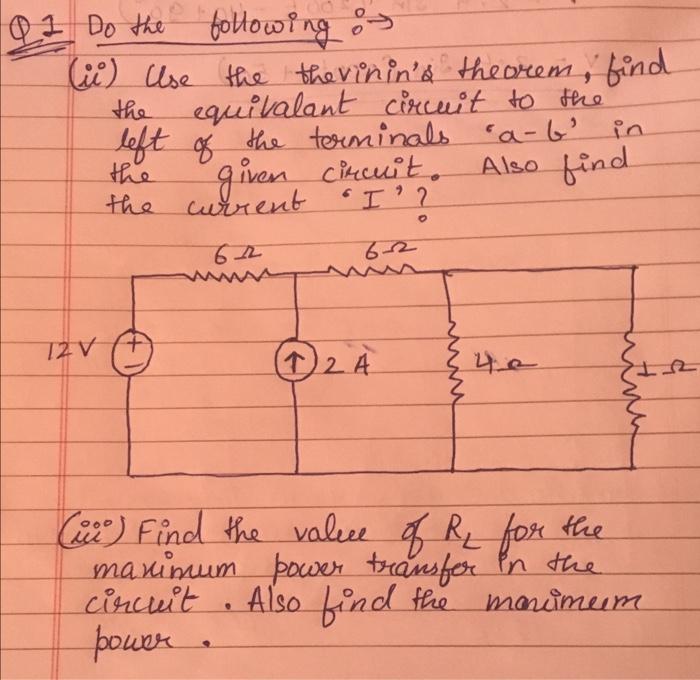 Q1 Do the following :→
(ii) Use the thevinin's theorem, find
the equivalant circuit to the
left of the terminals 'a-b' in
the given circuit. Also find
the current 'I'?
6Ω 6Ω
12V 2A 4Ω 1Ω
(iii) Find the value of RL for the
maximum power transfer in the
circuit. Also find the maximum
power.